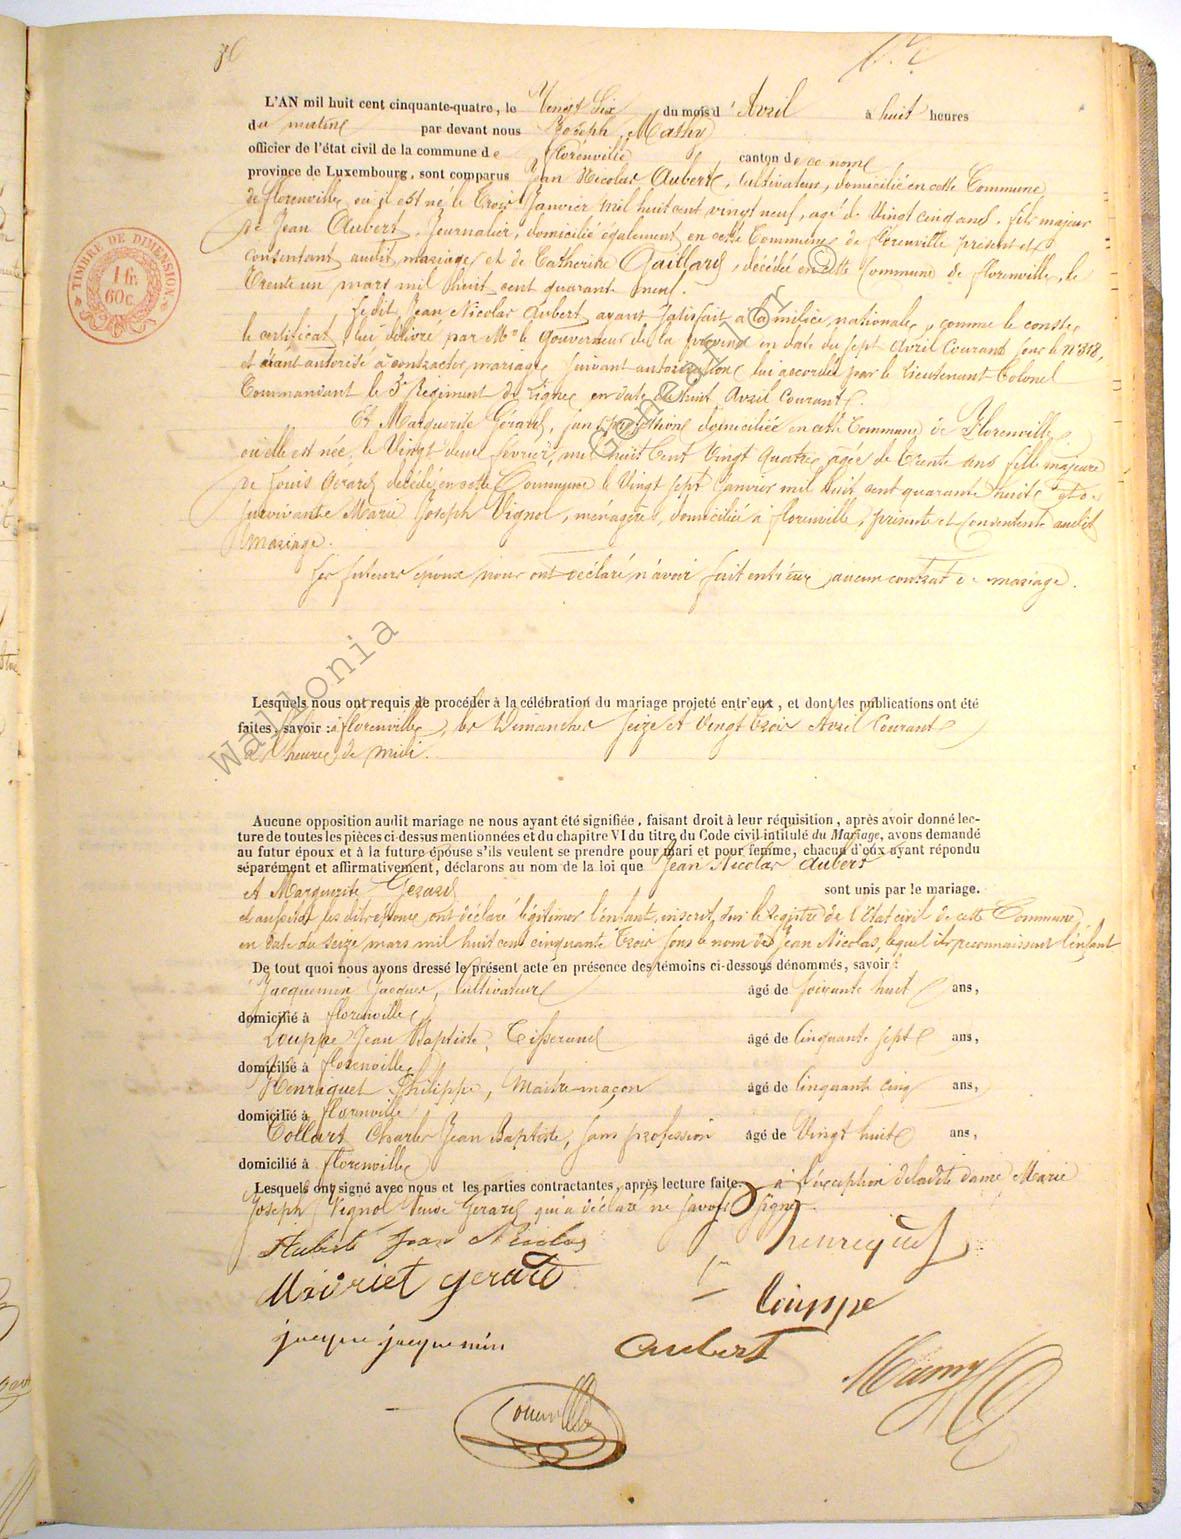 30
TIMBRE DE DIMENSION.
1 fr.
60c.
L'AN mil huit cent cinquante-quatre, le Vingt Six du mois d'Avril à huit heures
du matin par devant nous Joseph Mathy
officier de l'état civil de la commune de florenville, canton de ce nom
province de Luxembourg, sont comparus Jean Nicolas Aubert, Cultivateur, domicilié en cette Commune
de florenville où il est né le Trois Janvier mil huit cent vingt neuf, agé de Vingt cinq ans, fils majeur
de Jean Aubert, Journalier, domicilié egalement en cette Commune de florenville présent et
consentant audit mariage et de Catherine Gaillard, décédée en cette Commune de florenville, le
Trente un mars mil huit cent quarante neuf.
Ledit Jean Nicolas Aubert ayant satisfait à la milice nationale, comme le conste
le certificat lui délivré par Mr le Gouverneur de la province en date du sept Avril Courant sous le n° 318,
et étant autorisé à contracter mariage suivant autorisation lui accordée par le Lieutenant-Colonel
Commandant le 3e Régiment de Ligne en date du huit Avril Courant.
Et Marguerite Gérard, sans profession domiciliée en cette Commune de Florenville,
où elle est née, le Vingt deux février, mil huit Cent Vingt quatre, agée de Trente ans fille majeure
de Louis Gérard décédé en cette Commune le Vingt sept Janvier mil huit cent quarante huit et de
survivante Marie Joseph Vignol, ménagère, domiciliée à florenville, présente et consentente audit
mariage.
Les futurs époux nous ont déclaré n'avoir fait entr'eux aucun contrat de mariage.
Lesquels nous ont requis de procéder à la célébration du mariage projeté entr'eux, et dont les publications ont été
faites, savoir : à florenville, les Dimanches Seize et Vingt trois Avril Courant
à l'heure de midi.
Aucune opposition audit mariage ne nous ayant été signifiée, faisant droit à leur réquisition, après avoir donné lec-
ture de toutes les pièces ci-dessus mentionnées et du chapitre VI du titre du Code civil intitulé du Mariage, avons demandé
au futur époux et à la future épouse s'ils veulent se prendre pour mari et pour femme, chacun d'eux ayant répondu
séparément et affirmativement, déclarons au nom de la loi que Jean Nicolas Aubert
et Marguerite Gerard sont unis par le mariage.
et aussitôt les dits époux ont déclaré légitimer l'enfant inscrit sur le Registre de l'Etat civil de cette Commune
en date du seize mars mil huit cent cinquante Trois sous le nom de Jean Nicolas, lequel ils reconnaissent l'enfant
De tout quoi nous avons dressé le présent acte en présence des témoins ci-dessous dénommés, savoir :
Jacquemin Jacques, Cultivateur âgé de soixante huit ans,
domicilié à florenville
Louppe Jean Baptiste, Tisserand âgé de Cinquante sept ans,
domicilié à florenville
Henriquet Philippe, Maitre-maçon âgé de Cinquante cinq ans,
domicilié à florenville
Collart Charles Jean Baptiste, sans profession âgé de Vingt huit ans,
domicilié à florenville
Lesquels ont signé avec nous et les parties contractantes, après lecture faite. à l'exception de ladite dame Marie
Joseph Vignol Veuve Gerard qui a déclaré ne savoir signer.
Aubert Jean Nicolas
henriquet
gerard
Louppe
jacque jacquemin
Aubert
Wallonia
Genealor
©